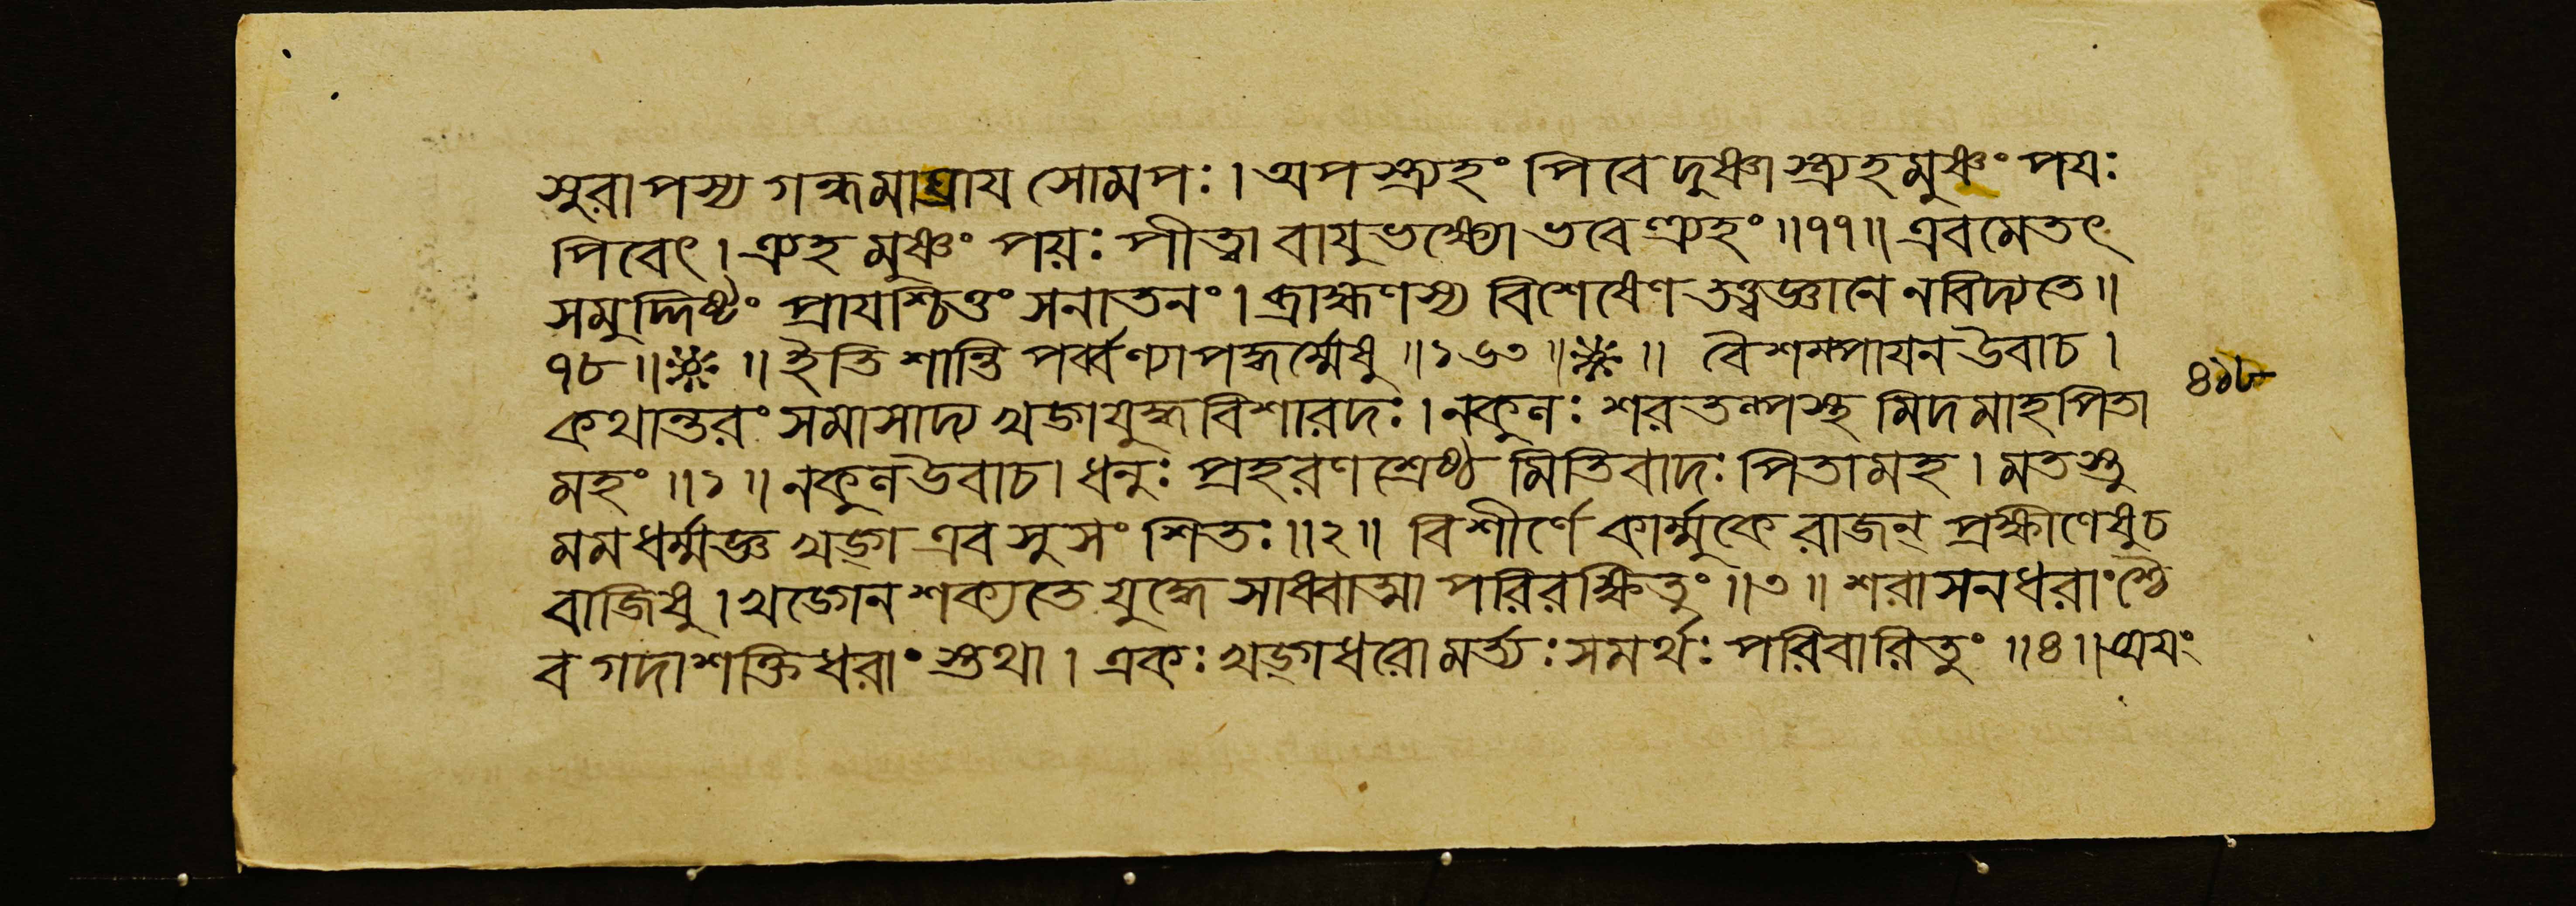 সুরাপস্য গন্ধমাঘ্রায সোমপঃ। অপস্ত্র্যহং পিবেদুষ্ণাস্ত্র্যহমুষ্ণং পযঃ
পিবেৎ। ত্র্যহমুষ্ণং পয়ঃ পীত্বা বাযুভক্ষ্যো ভবেত্র্যহং॥৭৭॥ এবমেতৎ
সমুদ্দিষ্টং প্রাযশ্চিত্তং সনাতনং। ব্রাহ্মণস্য বিশেষেণ তত্ত্বজ্ঞানে নবিদ্যতে॥
৭৮॥※॥ ইতি শান্তি পর্ব্বণ্যাপদ্ধর্ম্মেষু॥১৬৩॥※॥ বৈশম্পাযন উবাচ।
কথান্তরং সমাসাদ্য খড়্গযুদ্ধবিশারদঃ। নকুলঃ শরতল্পস্থ মিদমাহপিতা
মহং॥১॥ নকুলউবাচ। ধনুঃ প্রহরণ শ্রেষ্ঠ মিতিবাদঃ পিতামহ। মতস্তু
মমধর্ম্মজ্ঞ খড়্গ এব সুসংশিতঃ॥২॥ বিশীর্ণে কার্ম্মুকে রাজন্ প্রক্ষীণেষুচ
বাজিষু। খড়্গেন শক্যতে যুদ্ধে সাধ্বাত্মা পরিরক্ষিতুং॥৩॥ শরাসনধরাংশ্চৈ
ব গদাশক্তিধরাং স্তথা। একঃ খড়্গধরো মর্ত্যঃ সমর্থঃ পরিবারিতুং॥৪॥ অযং
৪১৮